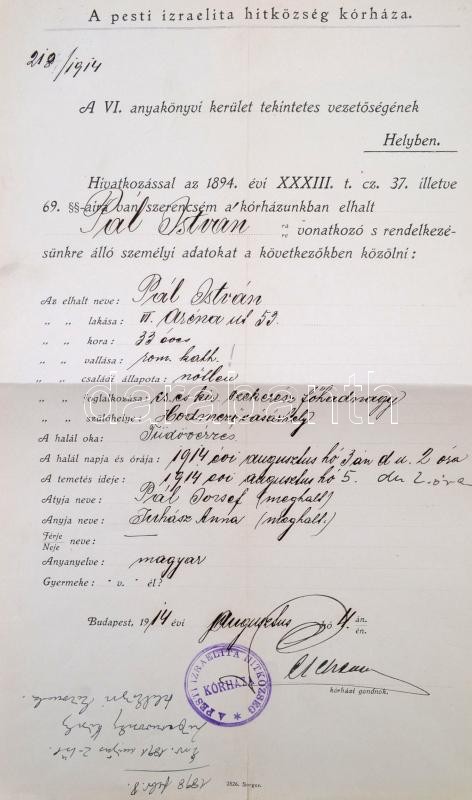 A pesti izraelita hitközség kórháza.
218/1914
A VI. anyakönyvi kerület tekintetes vezetőségének
Helyben.
Hivatkozással az 1894. évi XXXIII. t. cz. 37. illetve
69. §§-aira van szerencsém a kórházunkban elhalt
Pál István ra re vonatkozó s rendelkezé-
sünkre álló személyi adatokat a következőkben közölni:
Az elhalt neve: Pál István
„ „ lakása: VI. Aréna ut 53.
„ „ kora: 33 éves
„ „ vallása: rom. kath.
„ „ családi állapota: nőtlen
„ „ foglalkozása: cs. és kir. szekerész főhadnagy
„ „ szülőhelye: Hódmezővásárhely
A halál oka: Tüdővérzés
A halál napja és órája: 1914 évi augusztus hó 3án d. u. 2 óra
A temetés ideje: 1914 évi augusztus hó 5. du 2. óra
Atyja neve: Pál József (meghalt)
Anyja neve: Juhász Anna (meghalt.)
Férje Neje neve: —
Anyanyelve: magyar
Gyermeke: v. él?
Budapest, 1914 évi augusztus hó 4. án. én.
kórházi gondnok.
A PESTI IZRAELITA HITKÖZSÉG KÓRHÁZA
2826. Berger.
1898 febr. 8.
darabanth